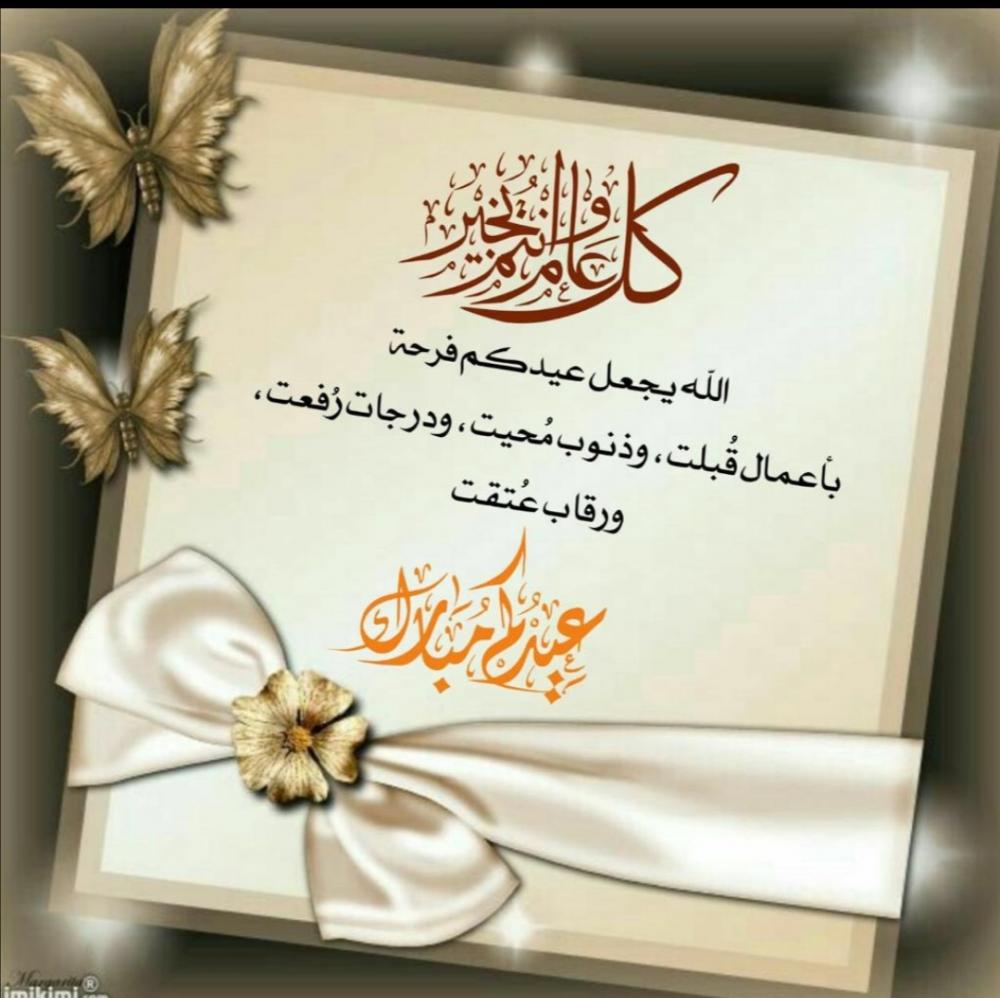 كل عام وانتم بخير
الله يجعل عيدكم فرحة
بأعمال قُبلت، وذنوب مُحيت، ودرجات رُفعت،
ورقاب عُتقت
عيدكم مبارك
Margarita ®
imikimi